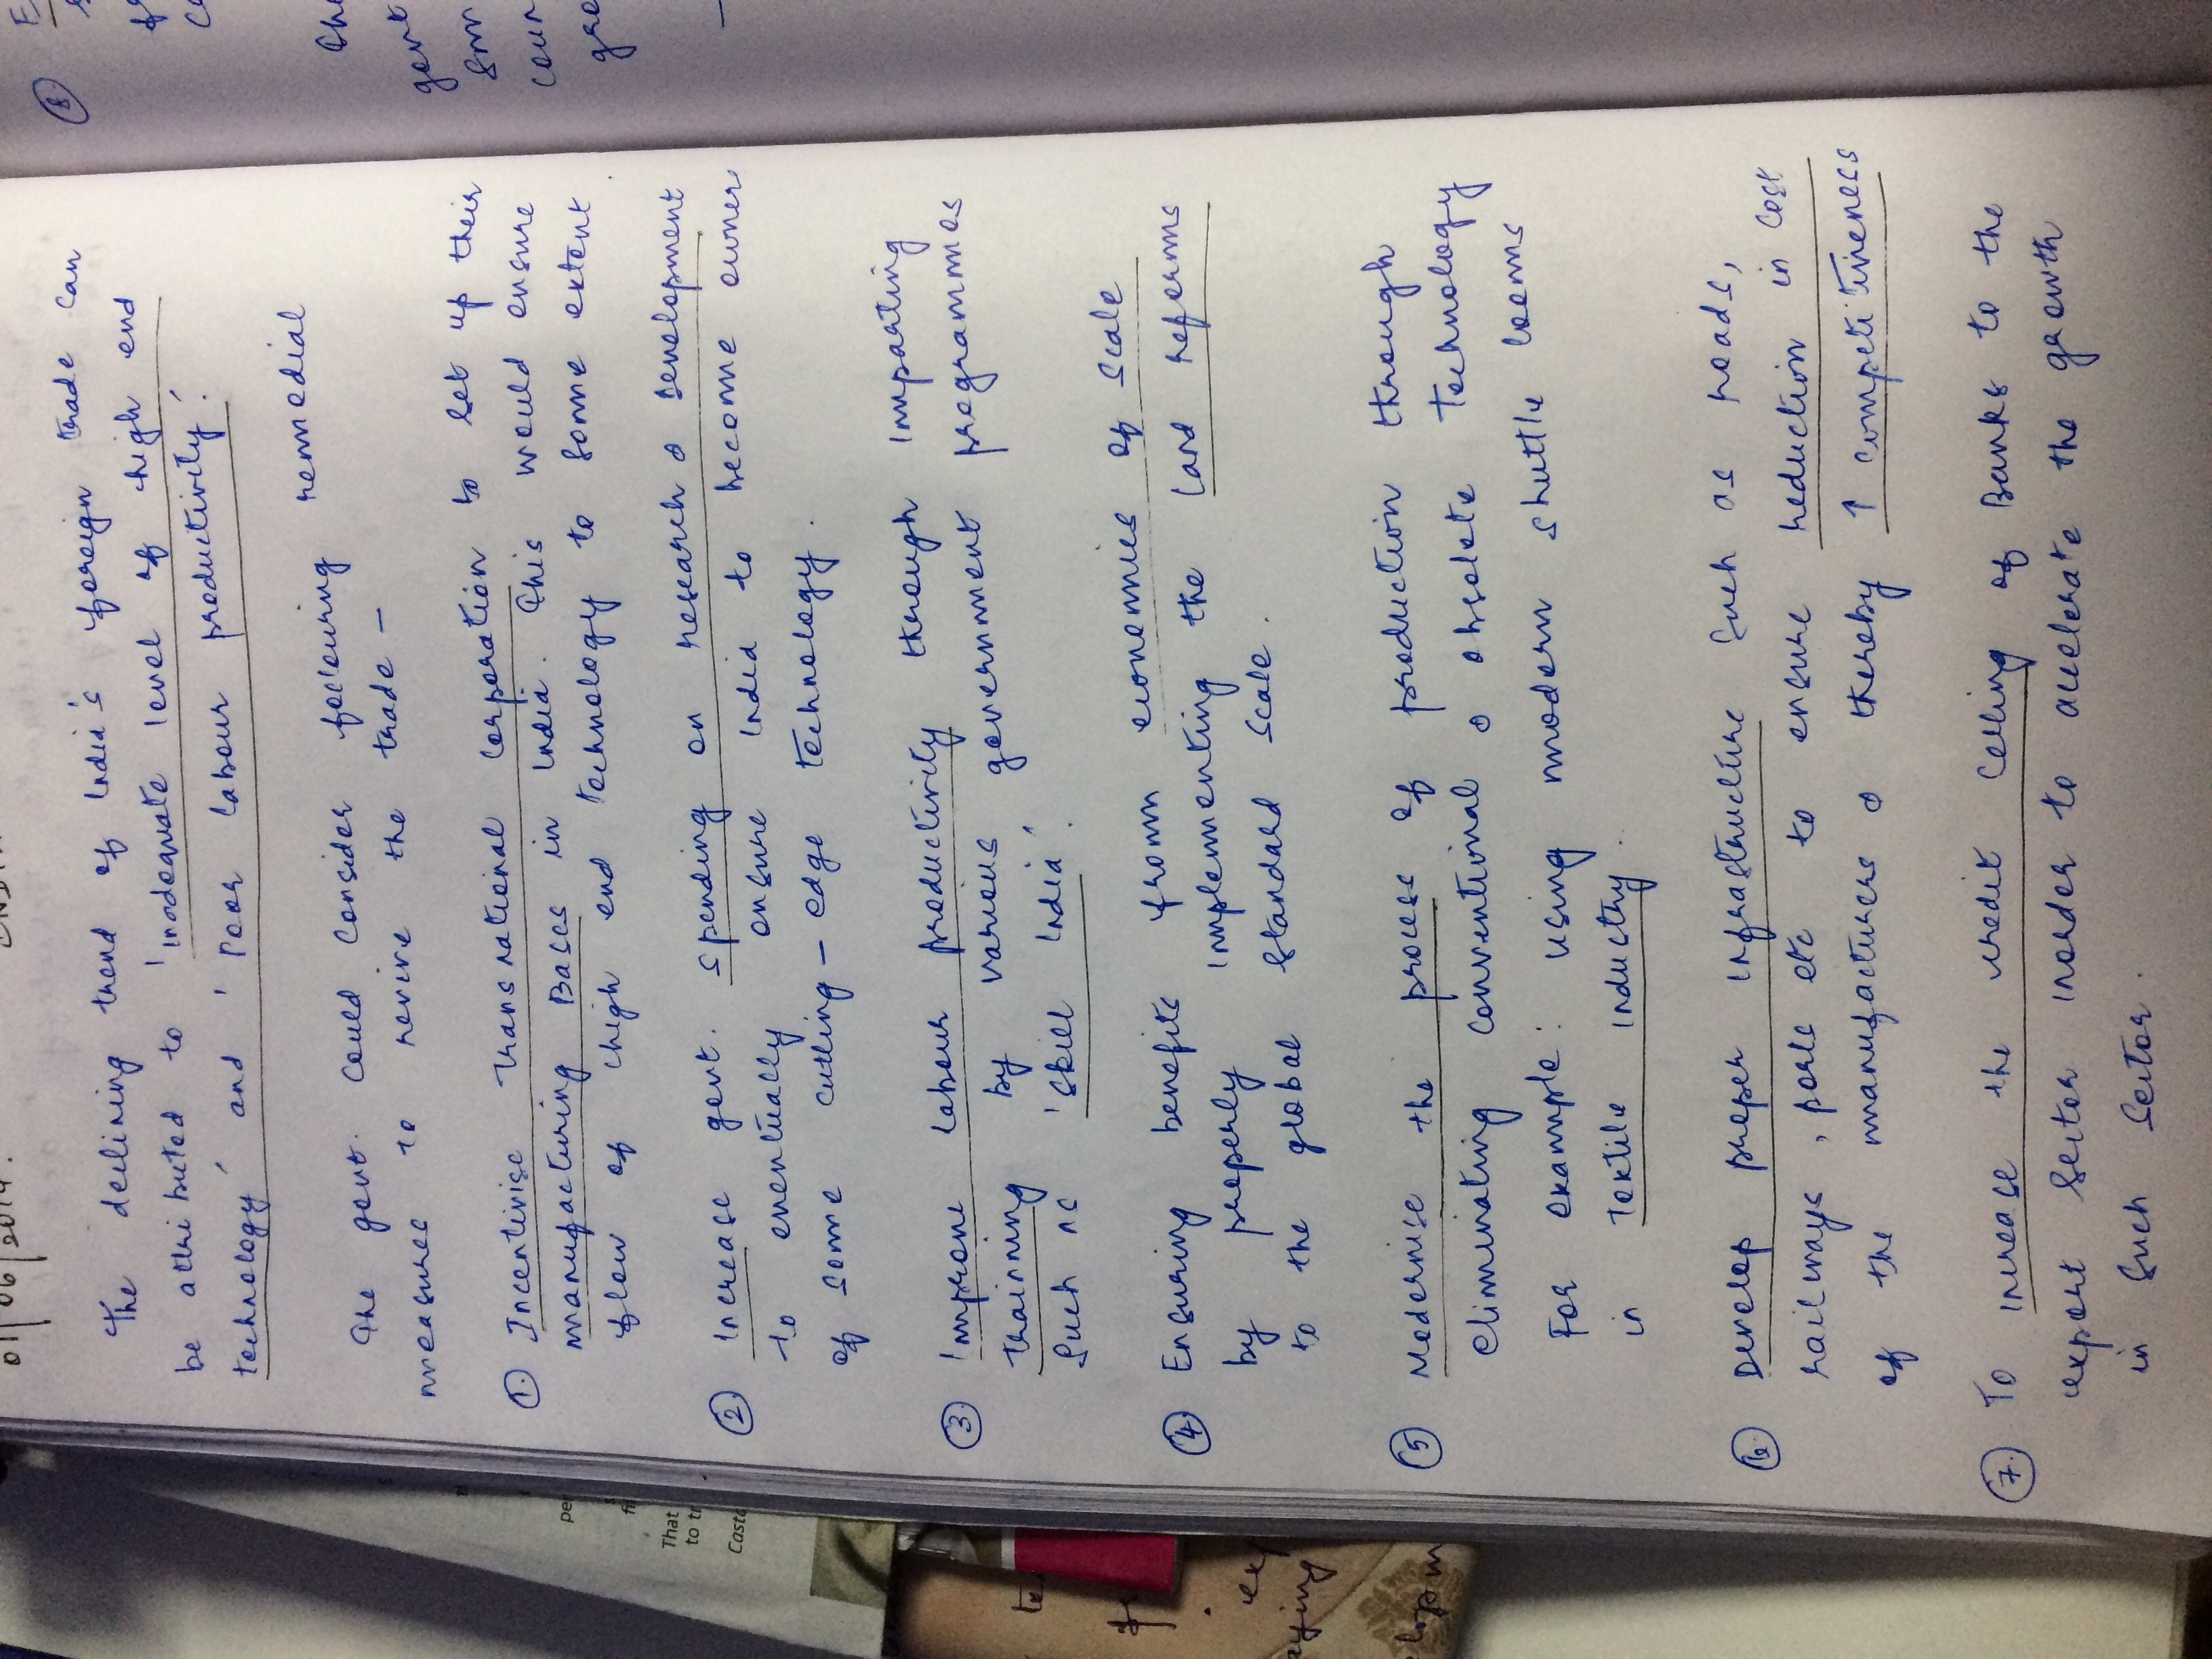 01/06/2019.
The declining trend of India's foreign trade can
be attributed to 'Inadequate level of high end
technology' and 'Poor Labour productivity'.
The govt. could consider following remedial
measures to revive the trade -
① Incentivise transnational corporation to set up their
manufacturing Bases in India. This would ensure
flow of high end technology to some extent.
② Increase govt. spending on research & development
to eventually ensure India to become owner
of some cutting-edge technology.
③ Improve Labour productivity through imparting
trainning by various government programmes
such as 'Skill India'.
④ Ensuring benefits from economies of scale
by properly implementing the land reforms
to the global standard scale.
⑤ Modernise the process of production through
eliminating conventional & obsolete technology
For example: using modern shuttle looms
in textile industry.
⑥ Develop proper infrastructure such as roads,
railways, ports etc to ensure reduction in cost
of the manufacturers & thereby ↑ competitiveness
⑦ To increase the credit ceiling of Banks to the
export sector inorder to accelerate the growth
in such sector.
⑧
govt
per
That
to tr